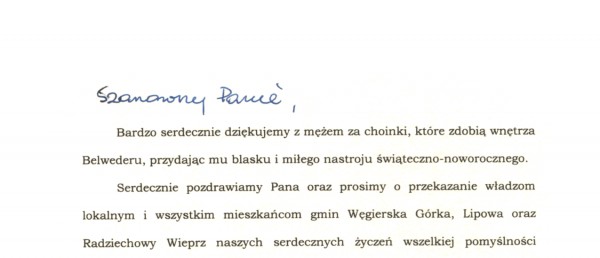 Szanowny Panie,
Bardzo serdecznie dziękujemy z mężem za choinki, które zdobią wnętrza
Belwederu, przydając mu blasku i miłego nastroju świąteczno-noworocznego.
Serdecznie pozdrawiamy Pana oraz prosimy o przekazanie władzom
lokalnym i wszystkim mieszkańcom gmin Węgierska Górka, Lipowa oraz
Radziechowy Wieprz naszych serdecznych życzeń wszelkiej pomyślności